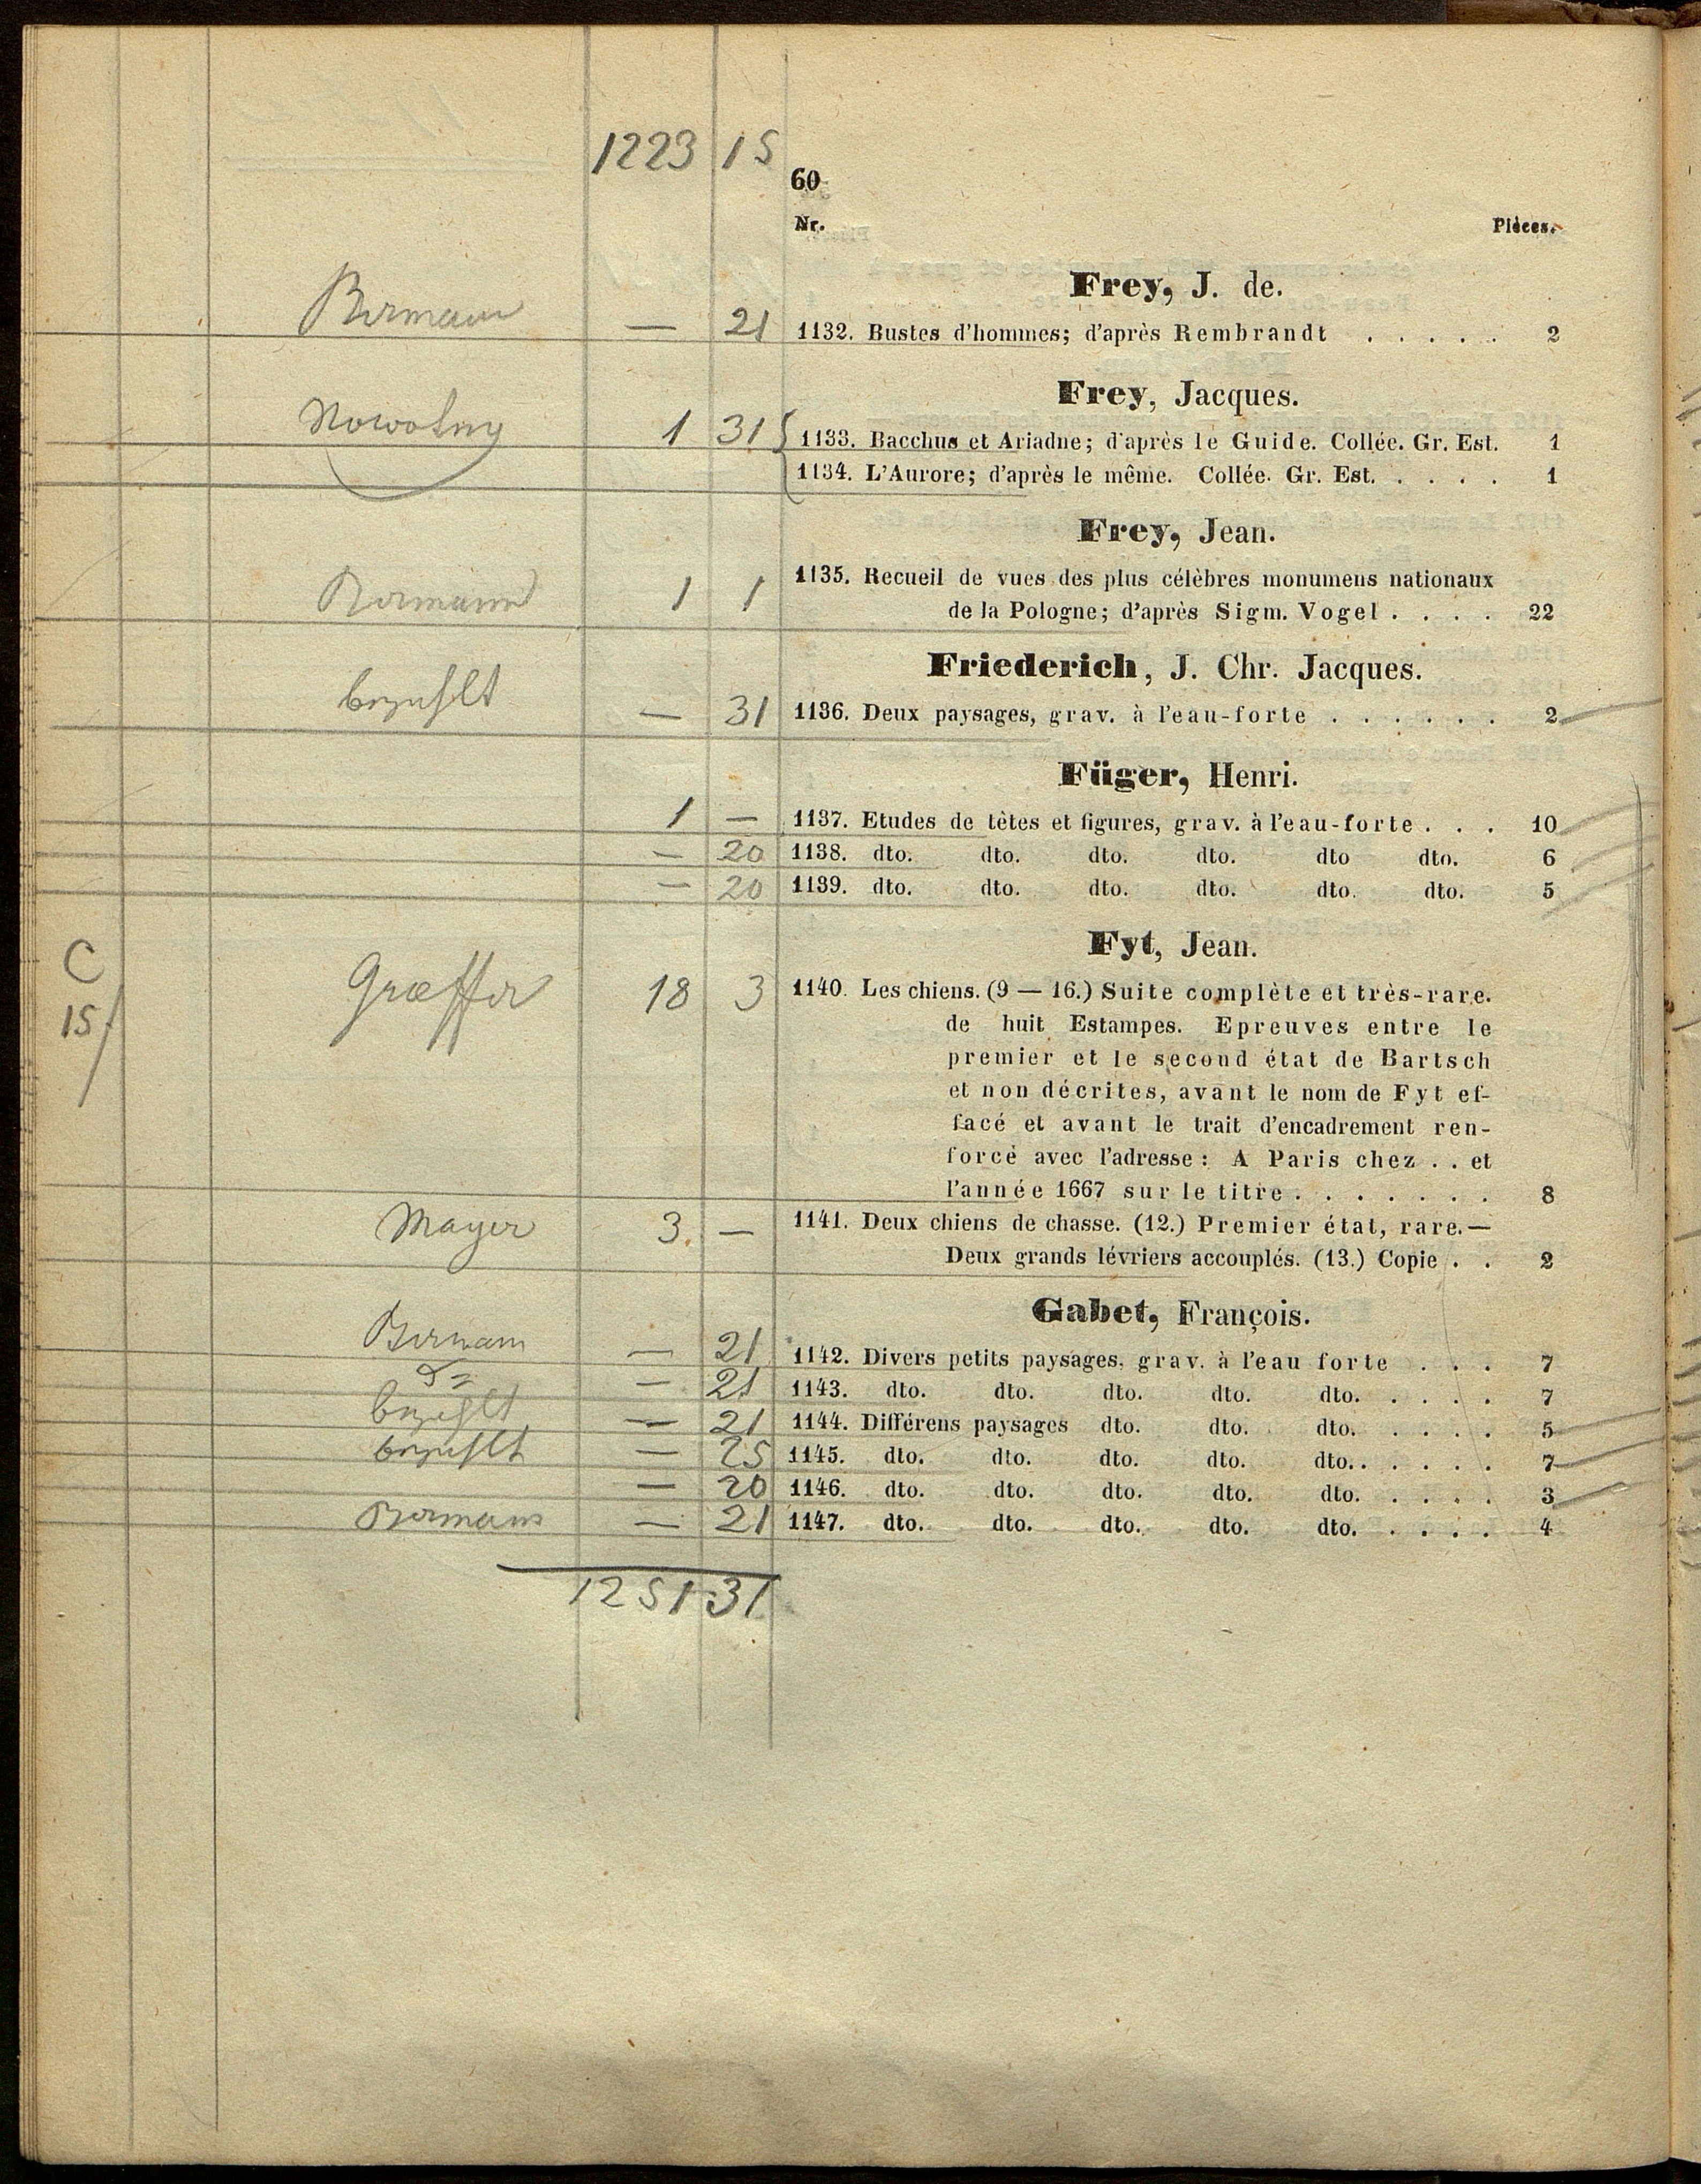 1223 15
60
Nr. Pièces.
Frey, J. de.
— 21 1132. Bustes d'hommes; d'après Rembrandt . . . . . 2
Frey, Jacques.
Nowotny 1 31 1133. Bacchus et Ariadne; d'après le Guide. Collée. Gr. Est. 1
1134. L'Aurore; d'après le même. Collée. Gr. Est. . . . . 1
Frey, Jean.
1 1 1135. Recueil de vues des plus célèbres monumens nationaux
de la Pologne; d'après Sigm. Vogel . . . . 22
Friederich, J. Chr. Jacques.
bezahlt — 31 1136. Deux paysages, grav. à l'eau-forte . . . . . . 2
Füger, Henri.
1 — 1137. Etudes de têtes et figures, grav. à l'eau-forte . . . 10
— 20 1138. dto. dto. dto. dto. dto dto. 6
— 20 1139. dto. dto. dto. dto. dto. dto. 5
Fyt, Jean.
C
15 Græffer 18 3 1140. Les chiens. (9 — 16.) Suite complète et très-rare.
de huit Estampes. Epreuves entre le
premier et le second état de Bartsch
et non décrites, avant le nom de Fyt ef-
facé et avant le trait d'encadrement ren-
forcé avec l'adresse: A Paris chez . . et
l'année 1667 sur le titre . . . . . . . 8
Mayer 3. — 1141. Deux chiens de chasse. (12.) Premier état, rare.—
Deux grands lévriers accouplés. (13.) Copie . . 2
Gabet, François.
— 21 1142. Divers petits paysages, grav. à l'eau forte . . . 7
— 21 1143. dto. dto. dto. dto. dto. . . . . 7
bezahlt — 21 1144. Différens paysages dto. dto. dto. . . . . 5
bezahlt — 25 1145. dto. dto. dto. dto. dto. . . . . . 7
— 20 1146. dto. dto. dto. dto. dto. . . . . 3
— 21 1147. dto. dto. dto. dto. dto. . . . . 4
1251 31